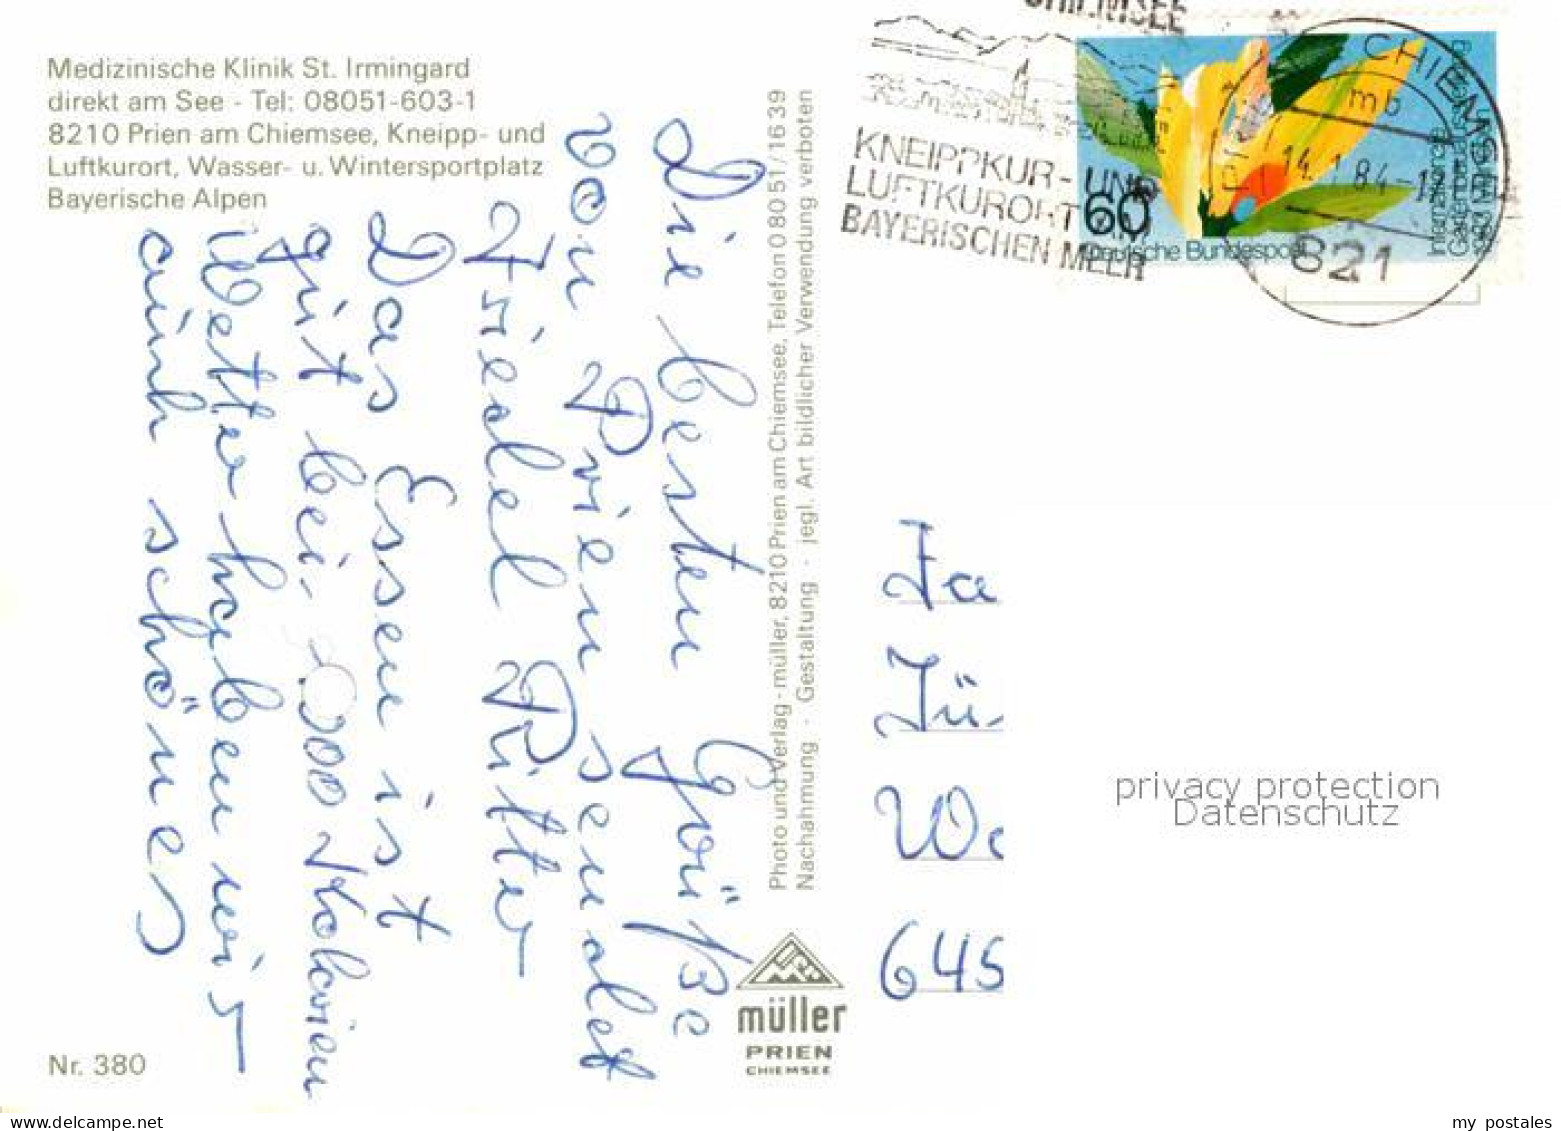 Medizinische Klinik St. Irmingard
direkt am See - Tel: 08051-603-1
8210 Prien am Chiemsee, Kneipp- und
Luftkurort, Wasser- u. Wintersportplatz
Bayerische Alpen
Die besten Grüße
von Prien sendet
Friedel Ritter
Das Essen ist
gut bei 000 Kalorien
Wetter haben wir
auch schönes
Nr. 380
Photo und Verlag - müller, 8210 Prien am Chiemsee, Telefon 0 80 51 / 16 39
Nachahmung · Gestaltung · jegl. Art bildlicher Verwendung verboten
müller
PRIEN
CHIEMSEE
CHIEMSEE
KNEIPPKUR- UND
LUFTKURORT
BAYERISCHEN MEER
60
Deutsche Bundespost
Internationale
Gartenbauausstellung
CHIEMSEE
mb
14.1.84-1
821
Fa
Jü
We
645
privacy protection
Datenschutz
my postales